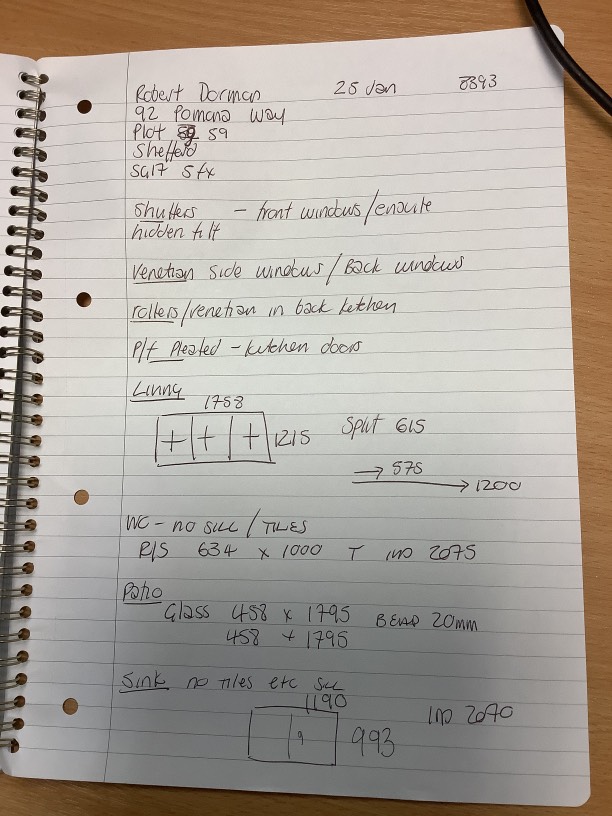 Robert Dorman 25 Jan 8393
92 Pomona Way
Plot 59
Shefford
SG17 5fx
Shutters - front windows/ensuite
hidden tilt
Venetian side windows / Back windows
rollers/venetian in back kitchen
P/f Pleated - kitchen doors
1758
1215 Split 615
575
1200
WC - no sill / TILES
R/S 634 x 1000 T 2075
Patio
Glass 458 x 1795 BEAD 20mm
458 + 1795
Sink no tiles etc sill
1190
993 2070